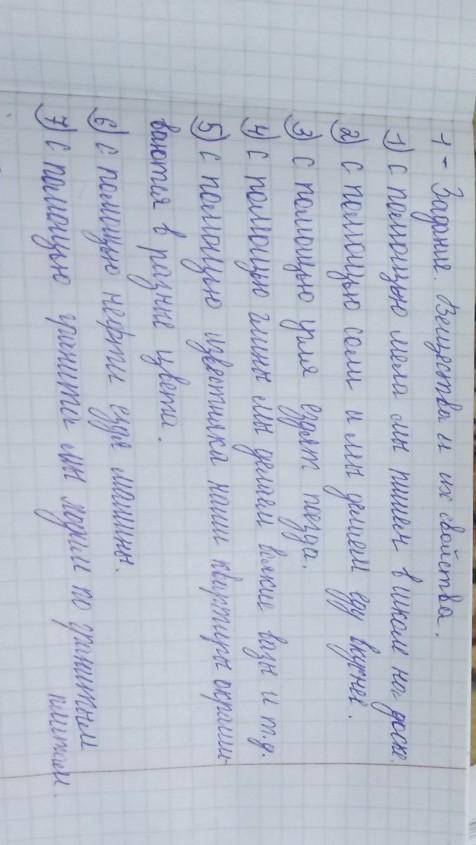 1 - Задание. Вещества и их свойства.
1) С помощью мела мы пишем в школе на доске.
2) С помощью соли и мы делаем еду вкусней.
3) С помощью угля ездят поезда.
4) С помощью глины мы делаем всякие вазы и т.д.
5) С помощью известняка наши квартиры окраши-
ваются в разные цвета.
6) С помощью нефти езди машины.
7) С помощью гранита мы ходим по гранитным
плитам.